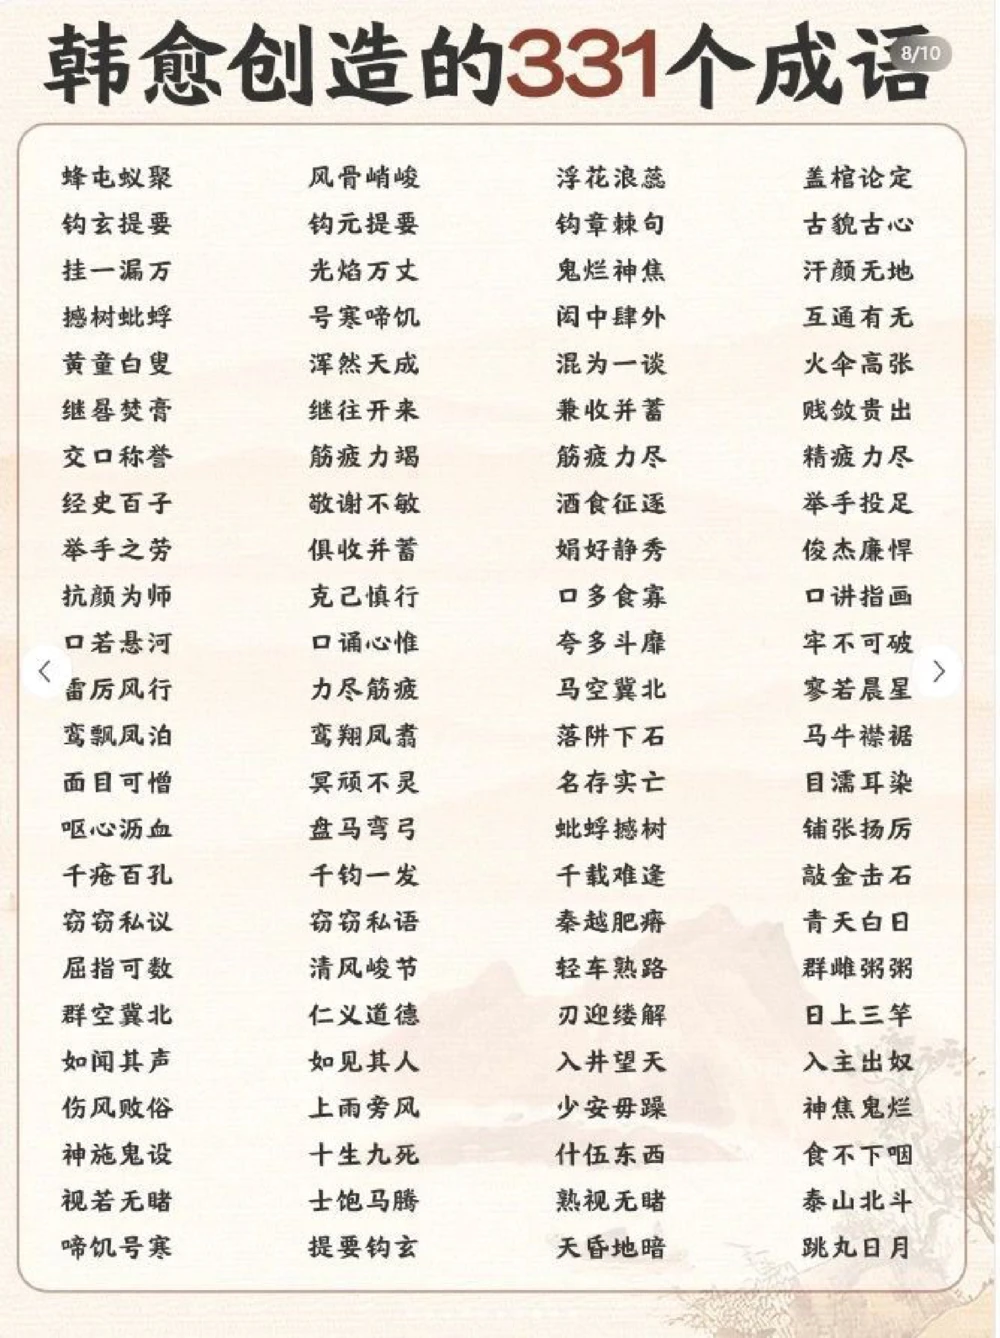 韩愈创造的331个成语
8/10
蜂屯蚁聚 风骨峭峻 浮花浪蕊 盖棺论定
钩玄提要 钩元提要 钩章棘句 古貌古心
挂一漏万 光焰万丈 鬼烂神焦 汗颜无地
撼树蚍蜉 号寒啼饥 闳中肆外 互通有无
黄童白叟 浑然天成 混为一谈 火伞高张
继晷焚膏 继往开来 兼收并蓄 贱敛贵出
交口称誉 筋疲力竭 筋疲力尽 精疲力尽
经史百子 敬谢不敏 酒食征逐 举手投足
举手之劳 俱收并蓄 娟好静秀 俊杰廉悍
抗颜为师 克己慎行 口多食寡 口讲指画
口若悬河 口诵心惟 夸多斗靡 牢不可破
雷厉风行 力尽筋疲 马空冀北 寥若晨星
鸾飘凤泊 鸾翔凤翥 落阱下石 马牛襟裾
面目可憎 冥顽不灵 名存实亡 目濡耳染
呕心沥血 盘马弯弓 蚍蜉撼树 铺张扬厉
千疮百孔 千钧一发 千载难逢 敲金击石
窃窃私议 窃窃私语 秦越肥瘠 青天白日
屈指可数 清风峻节 轻车熟路 群雌粥粥
群空冀北 仁义道德 刃迎缕解 日上三竿
如闻其声 如见其人 入井望天 入主出奴
伤风败俗 上雨旁风 少安毋躁 神焦鬼烂
神施鬼设 十生九死 什伍东西 食不下咽
视若无睹 士饱马腾 熟视无睹 泰山北斗
啼饥号寒 提要钩玄 天昏地暗 跳丸日月